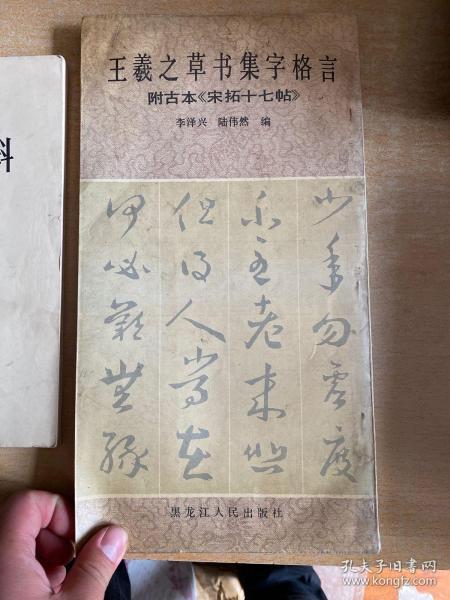 王羲之草书集字格言
附古本《宋拓十七帖》
李泽兴 陆伟然 编
少年勿虚度
老来
但得人常在
何必
黑龙江人民出版社
料
孔夫子旧书网
www.kongfz.com